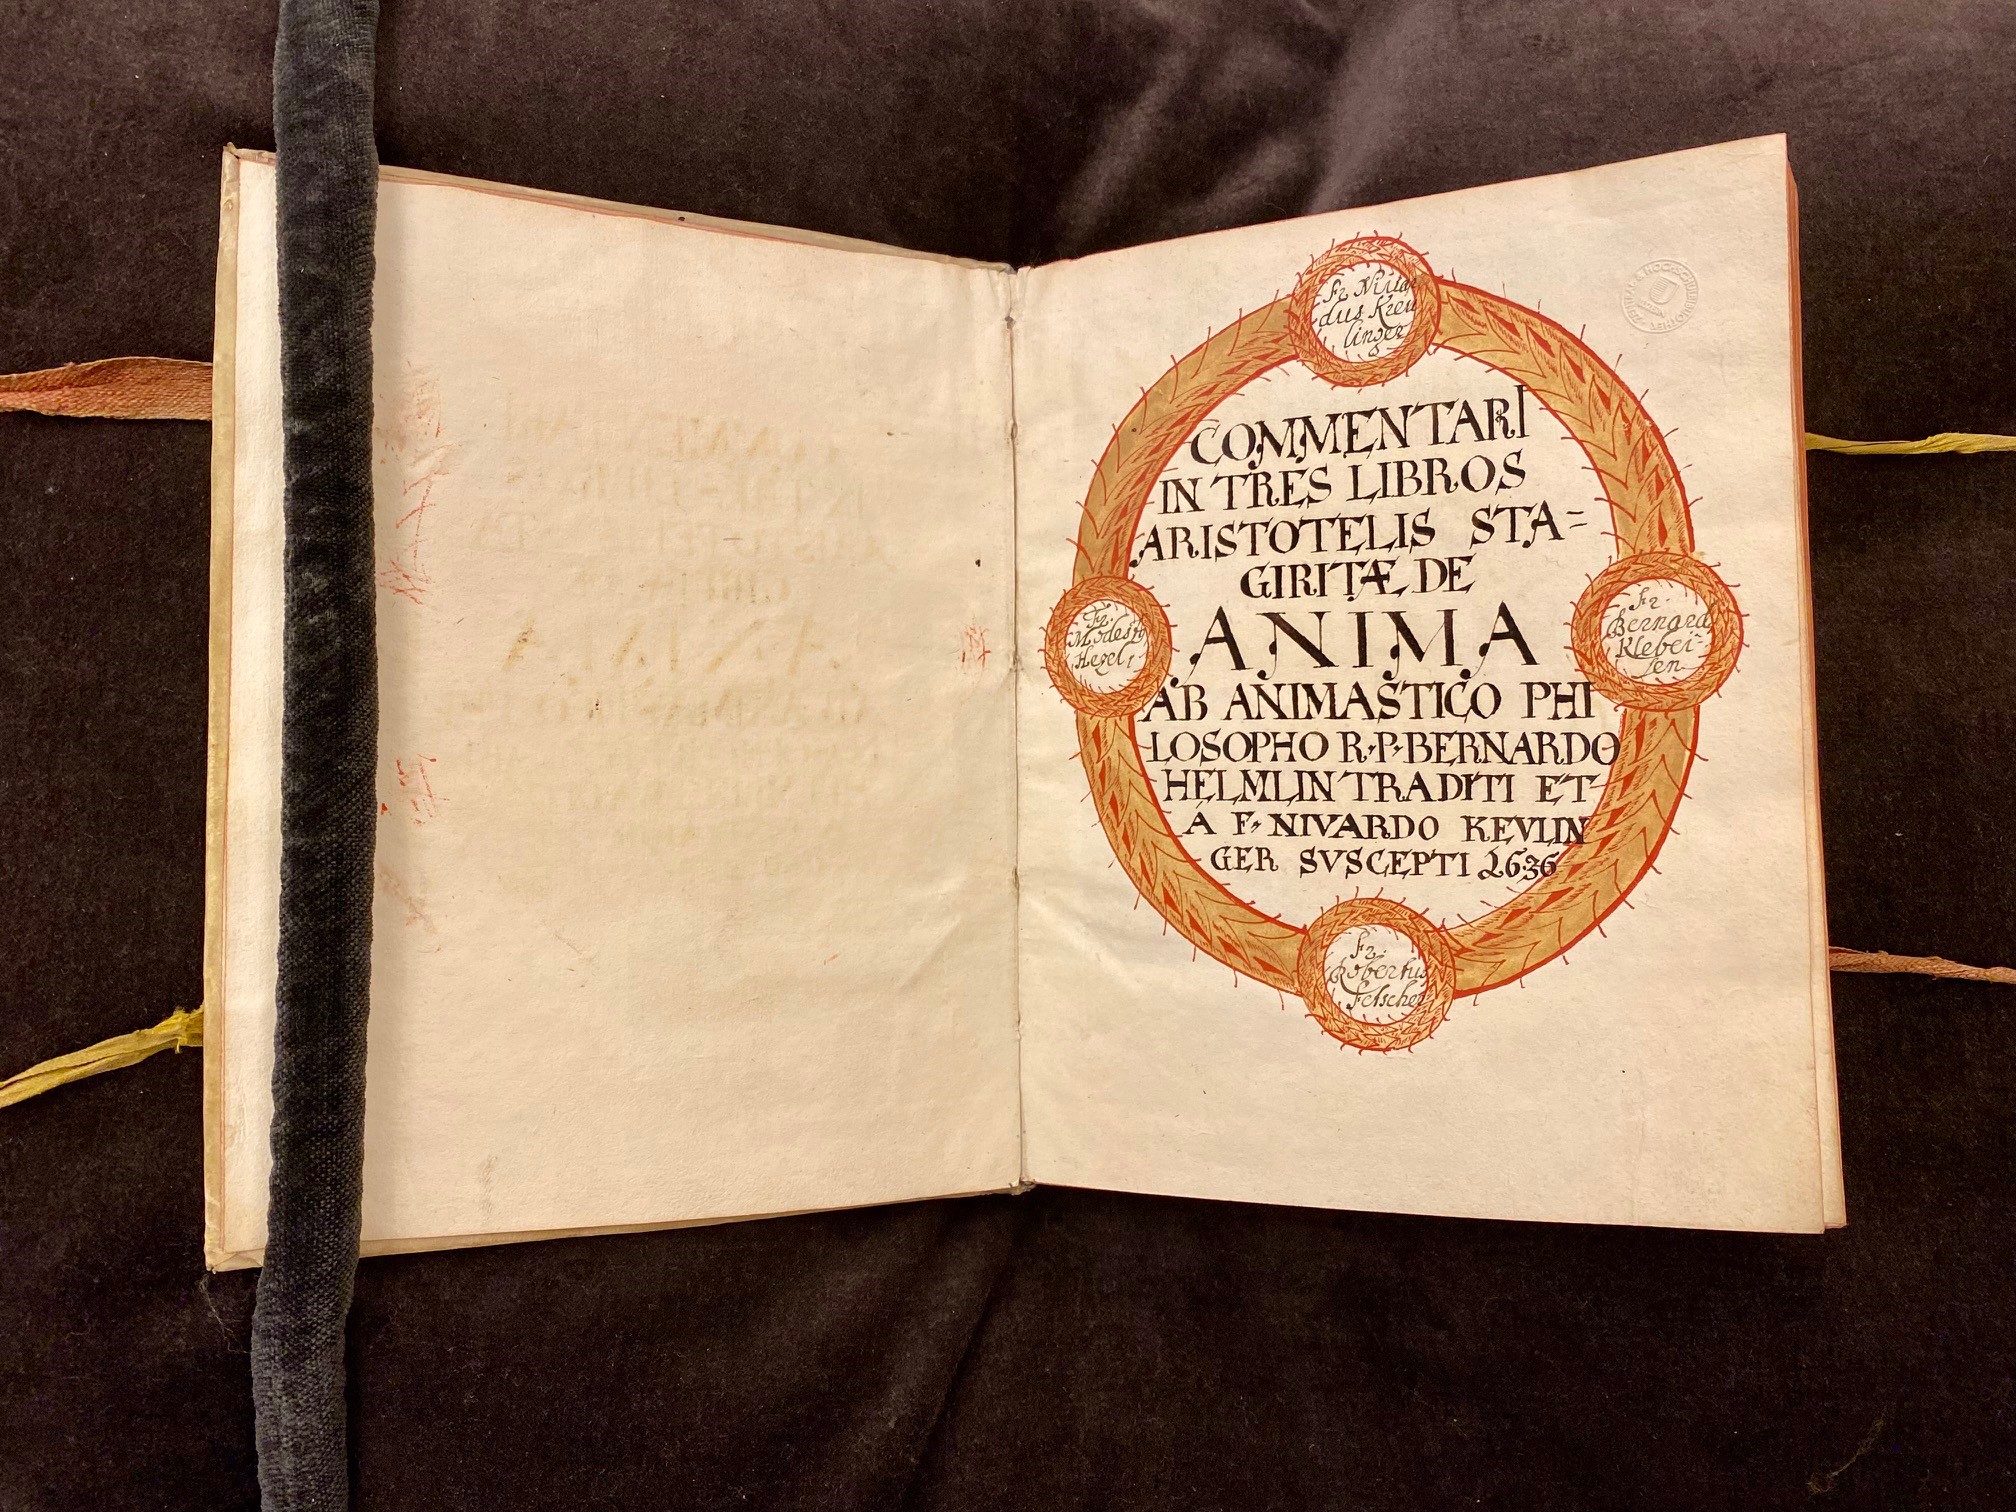 Fr Nivar
dus Kreu
linger
COMMENTARI
IN TRES LIBROS
ARISTOTELIS STA=
GIRITÆ DE
ANIMA
AB ANIMASTICO PHI
LOSOPHO R·P·BERNARDO
HELMLIN TRADITI ET
A F· NIVARDO KEVLIN
GER SVSCEPTI 1636
Fr.
Modest9
Hegel
Fr.
Bernard
Klebei=
sen
Fr.
Robertus
Felscher